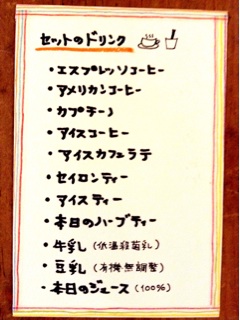 セットのドリンク
・エスプレッソコーヒー
・アメリカンコーヒー
・カプチーノ
・アイスコーヒー
・アイスカフェラテ
・セイロンティー
・アイスティー
・本日のハーブティー
・牛乳（低温殺菌乳）
・豆乳（有機無調整）
・本日のジュース（100%）